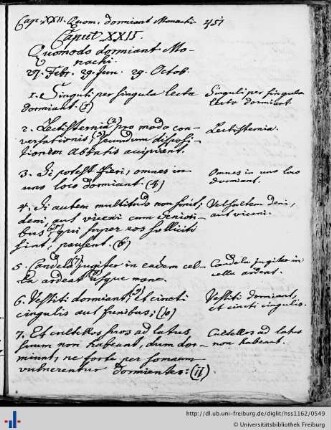 Cap. XXII. Quom. dormiant Monachi. 451
Caput XXII.
Quomodo dormiant Mo-
nachi.
27. Febr. 29. Jun. 29. Octob.
1. Singuli per singula lecta
dormiant.
Singuli per singula
lecta dormiant
2. Lectisternia pro modo con-
versationis, secundum disposi-
tionem Abbatis accipiant.
Lectisternia.
3. Si potest fieri, omnes in
uno loco dormiant. (4)
Omnes in uno loco
dormiant.
4. Si autem multitudo non sinit,
deni, aut viceni cum seniori-
bus, qui super eos solliciti
sint, pausent. (6)
deni,
aut viceni.
5. Candela jugiter in eadem cel-
la ardeat usque mane.
Candela jugiter in
cella ardeat.
6. Vestiti dormiant, et cincti
cingulis aut funibus; (10)
Vestiti dormiant,
et cincti cingulis.
7. Et cultellos suos ad latus
suum non habeant, dum dor-
miunt, ne forte per somnum
vulnerentur dormientes: (11)
Cultellos ad latus
non habeant.
http://dl.ub.uni-freiburg.de/diglit/hs1162/0549
© Universitätsbibliothek Freiburg